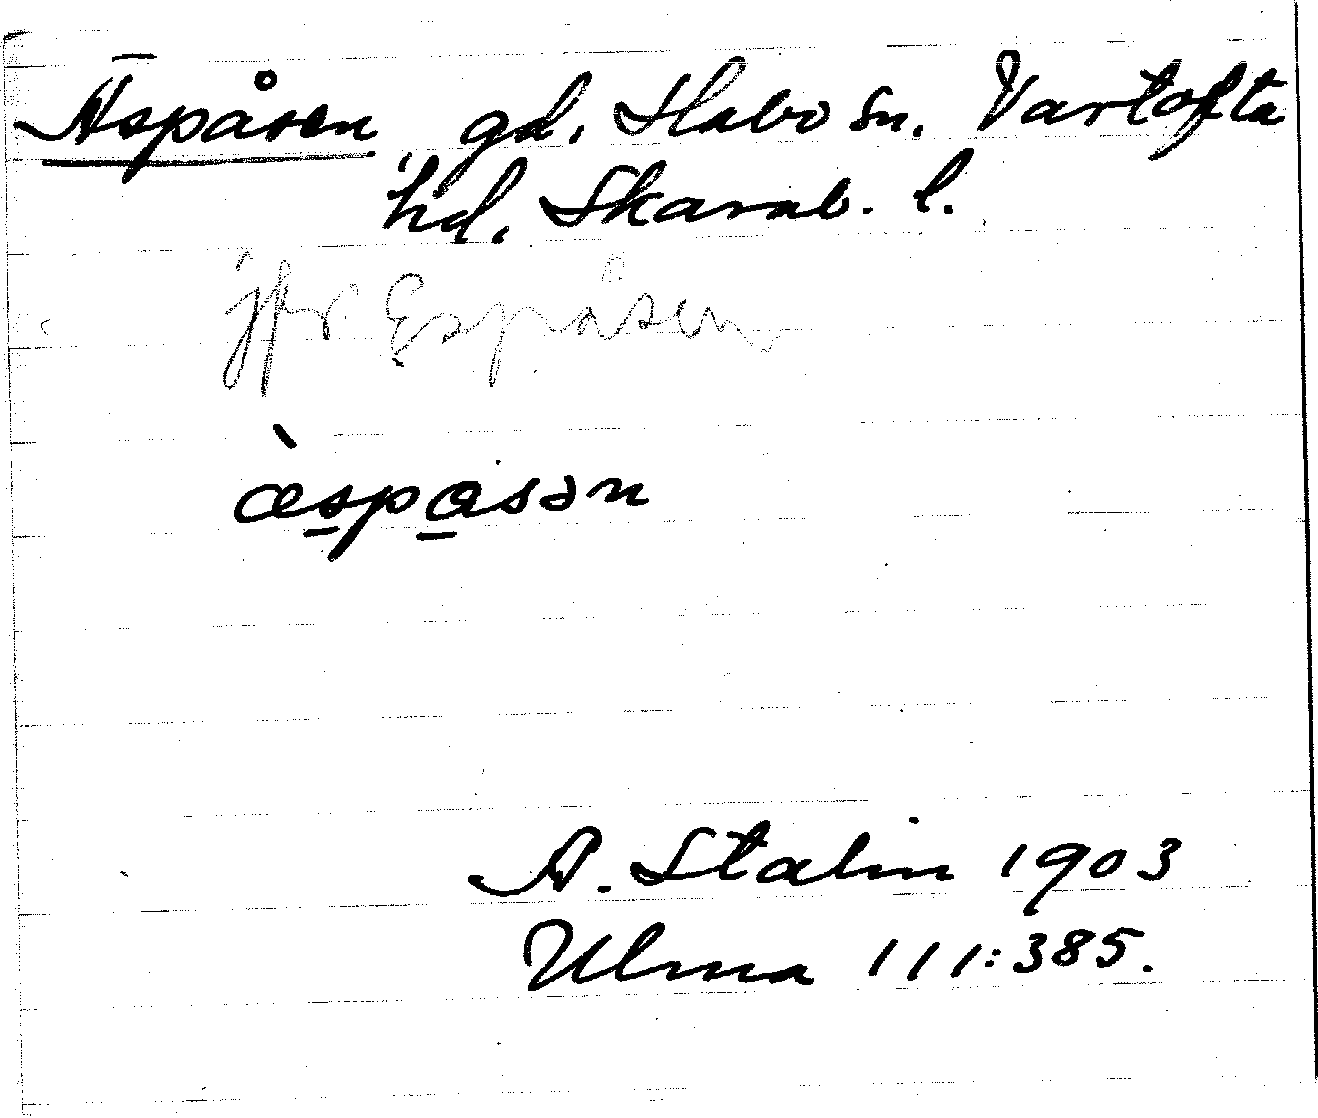 Äspåsen, gd, Habo sn. Vartofta
hd, Skarab. l.
jfr Espåsen
æ̀spåsən
A. Stalin 1903
Ulma 111:385.